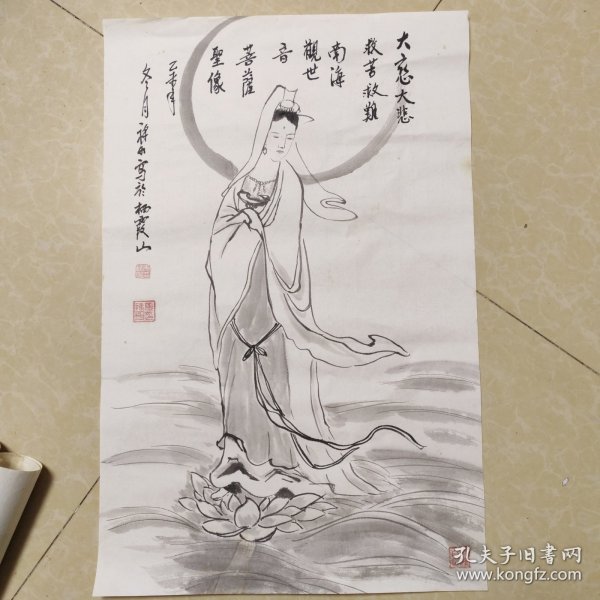 大慈大悲
救苦救難
南海
觀世
音
菩薩
聖像
乙未年
冬月禪和寫於栖霞山
孔夫子旧書网
www.kongfz.com